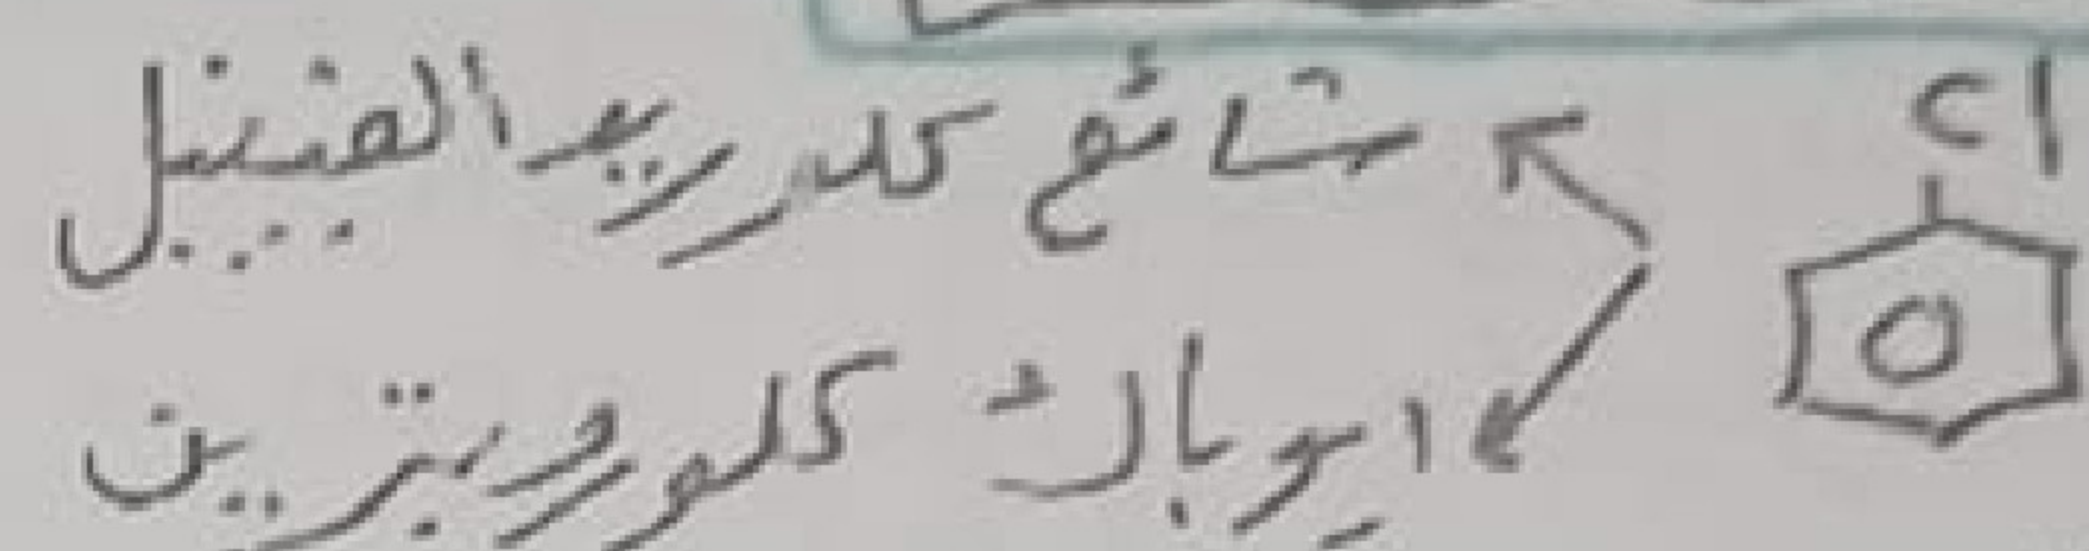 Cl
شائع كلوريد الفينيل
ايوباك كلوروبنزين